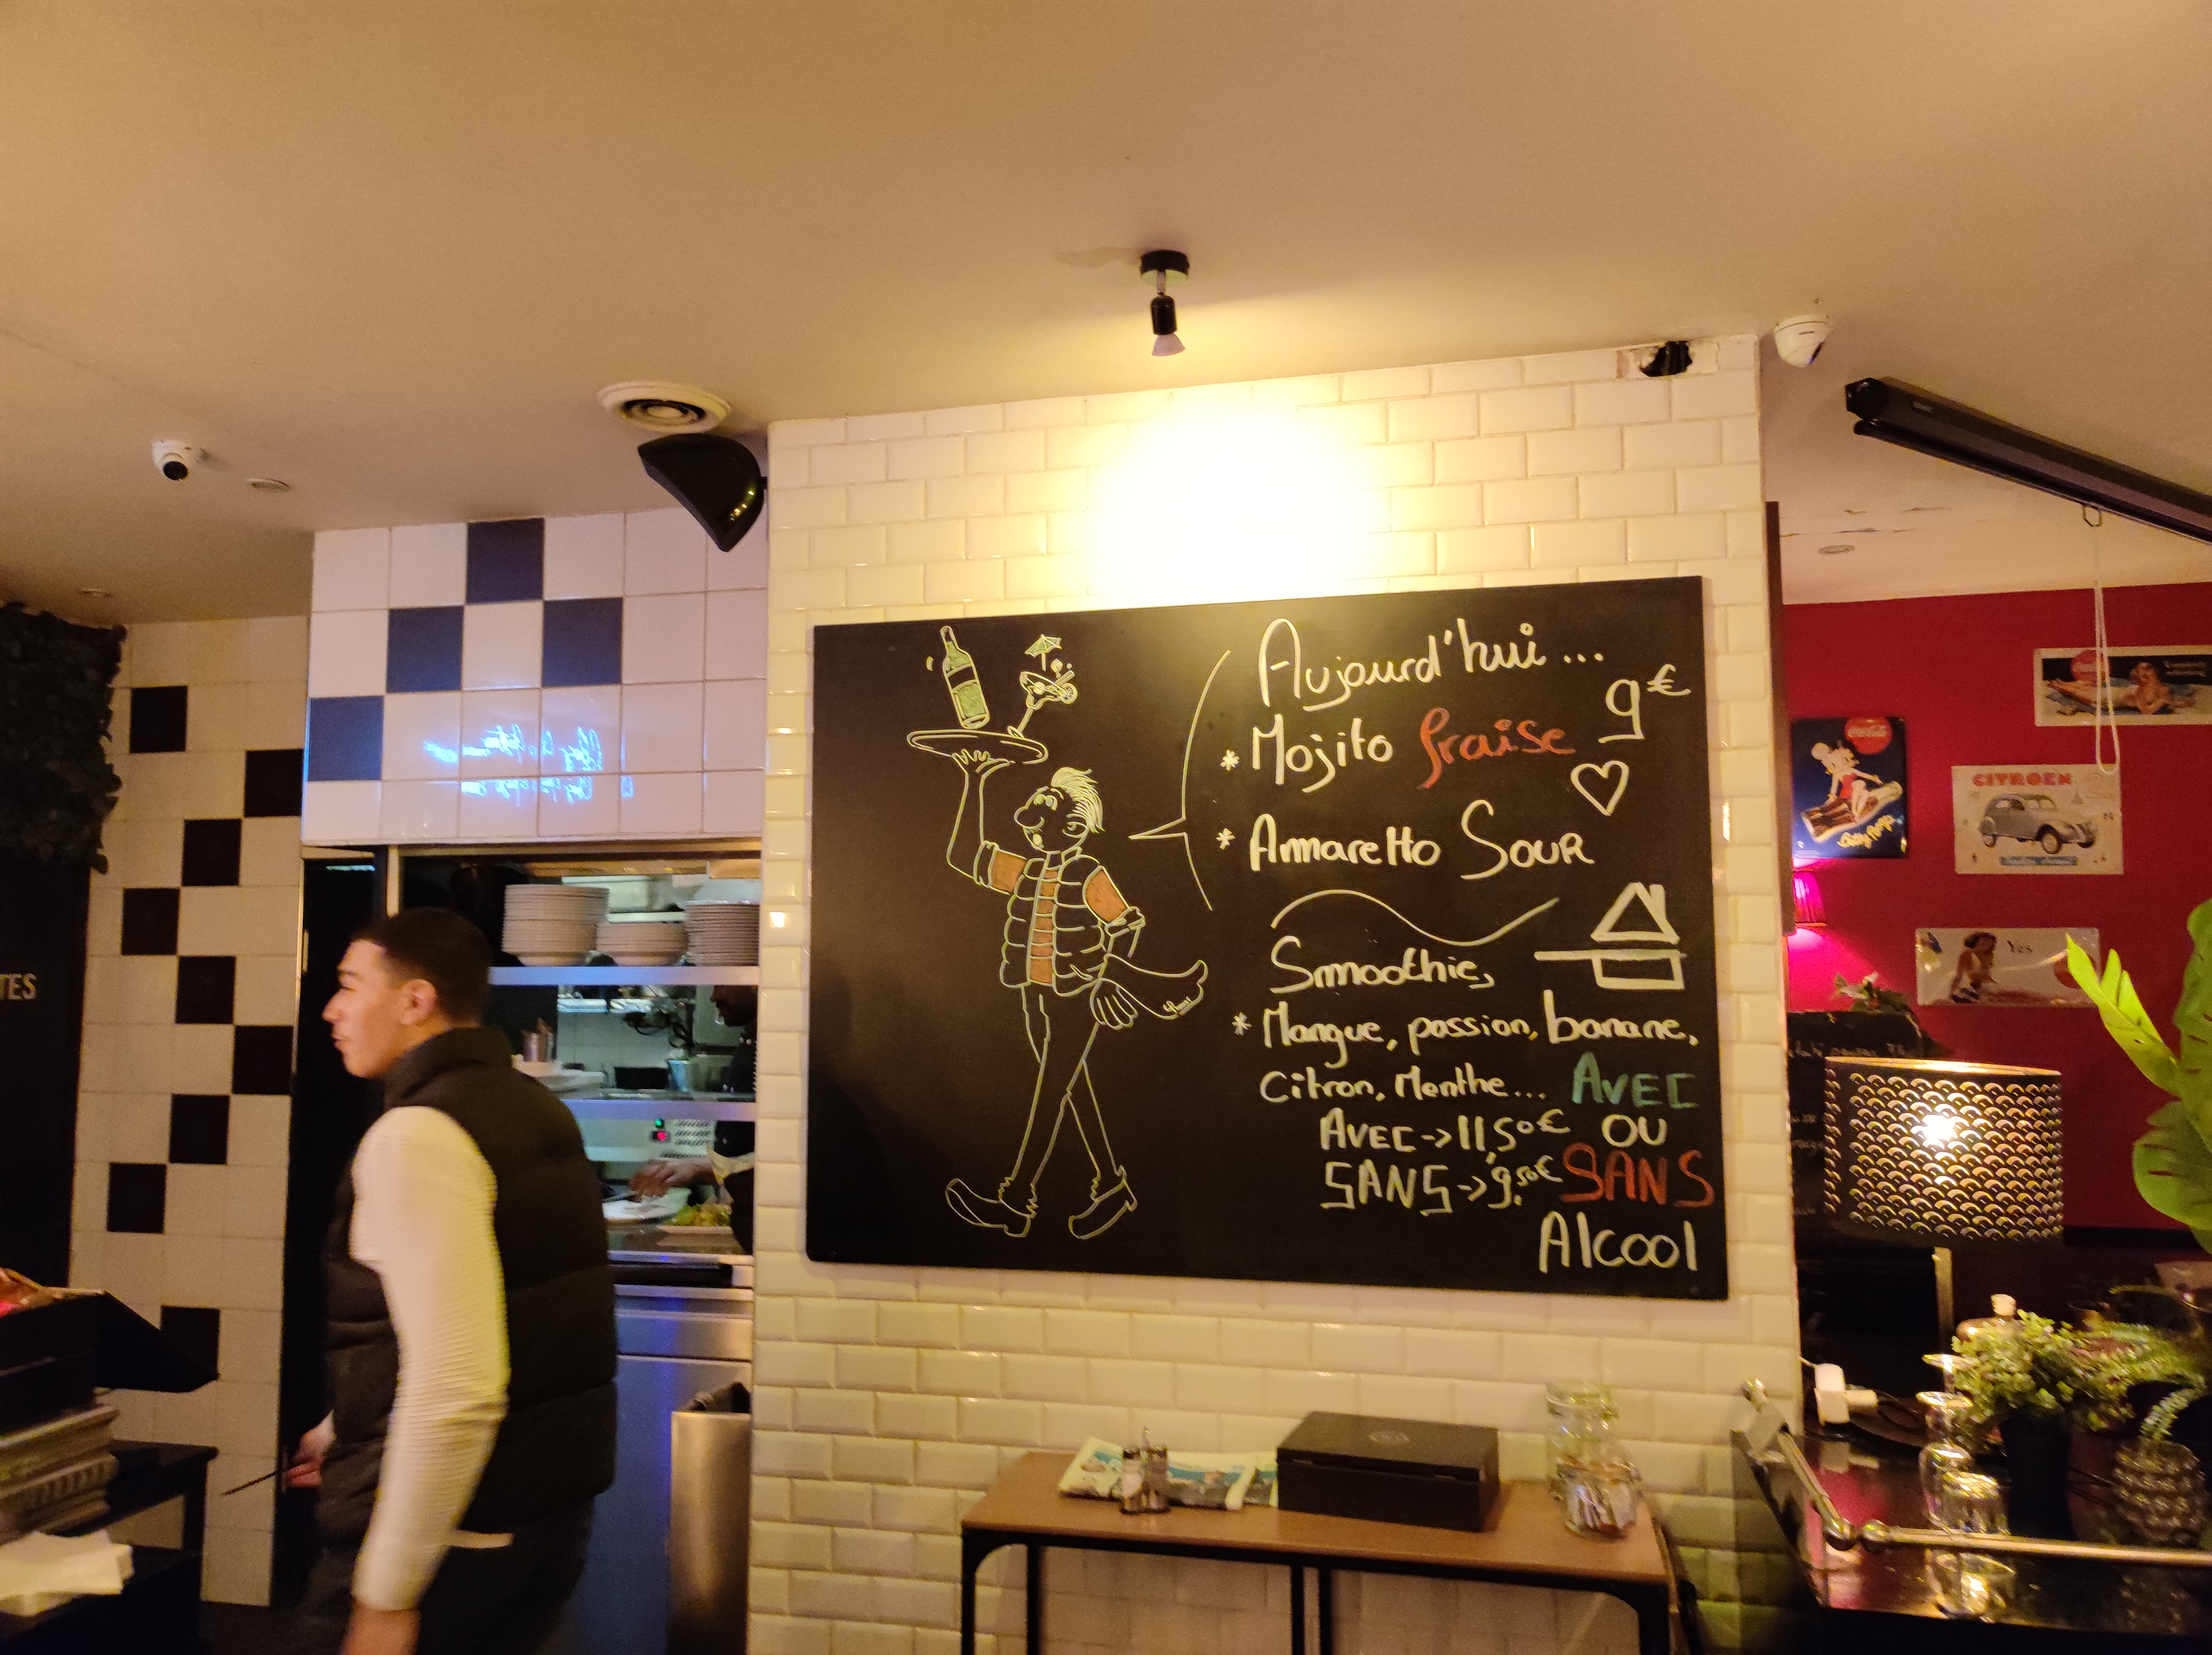 Aujourd'hui...
* Mojito fraise 9€
* Ammaretto Sour
Smoothie,
* Mangue, passion, banane,
Citron, Menthe... AVEC
AVEC -> 11,50€ OU
SANS -> 9,50€ SANS
Alcool
TES
Coca-Cola
Betty Boop
CITROEN
Yes